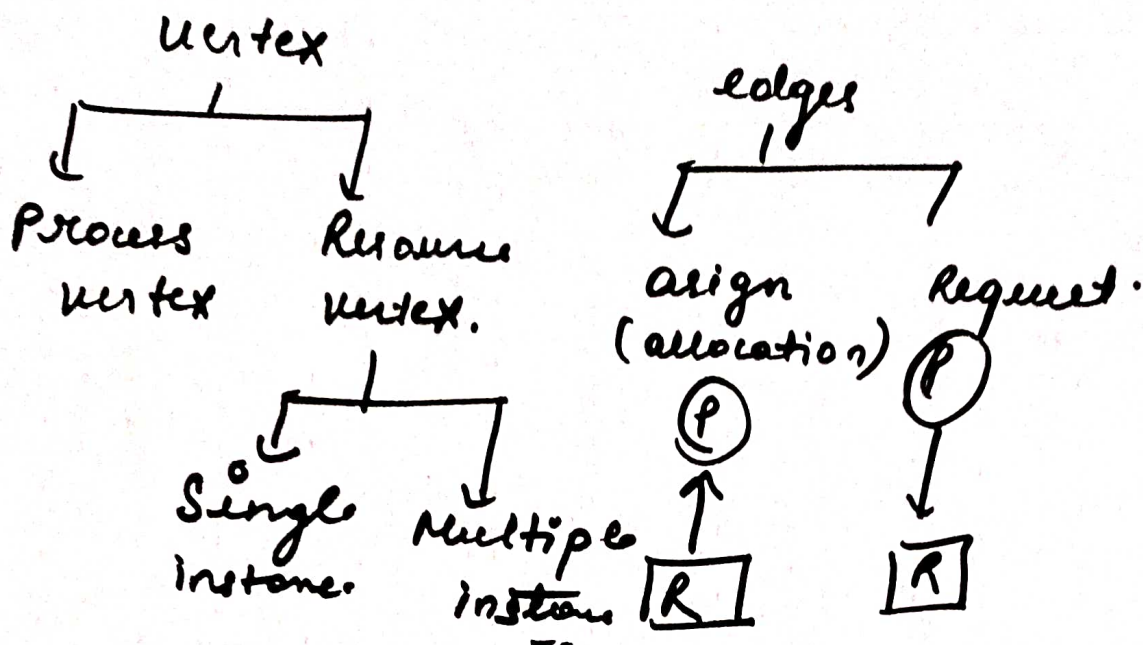 Vertex
Process
vertex
Resource
vertex.
Single
instance
Multiple
instance
edges
asign
(allocation)
P
R
Request.
P
R